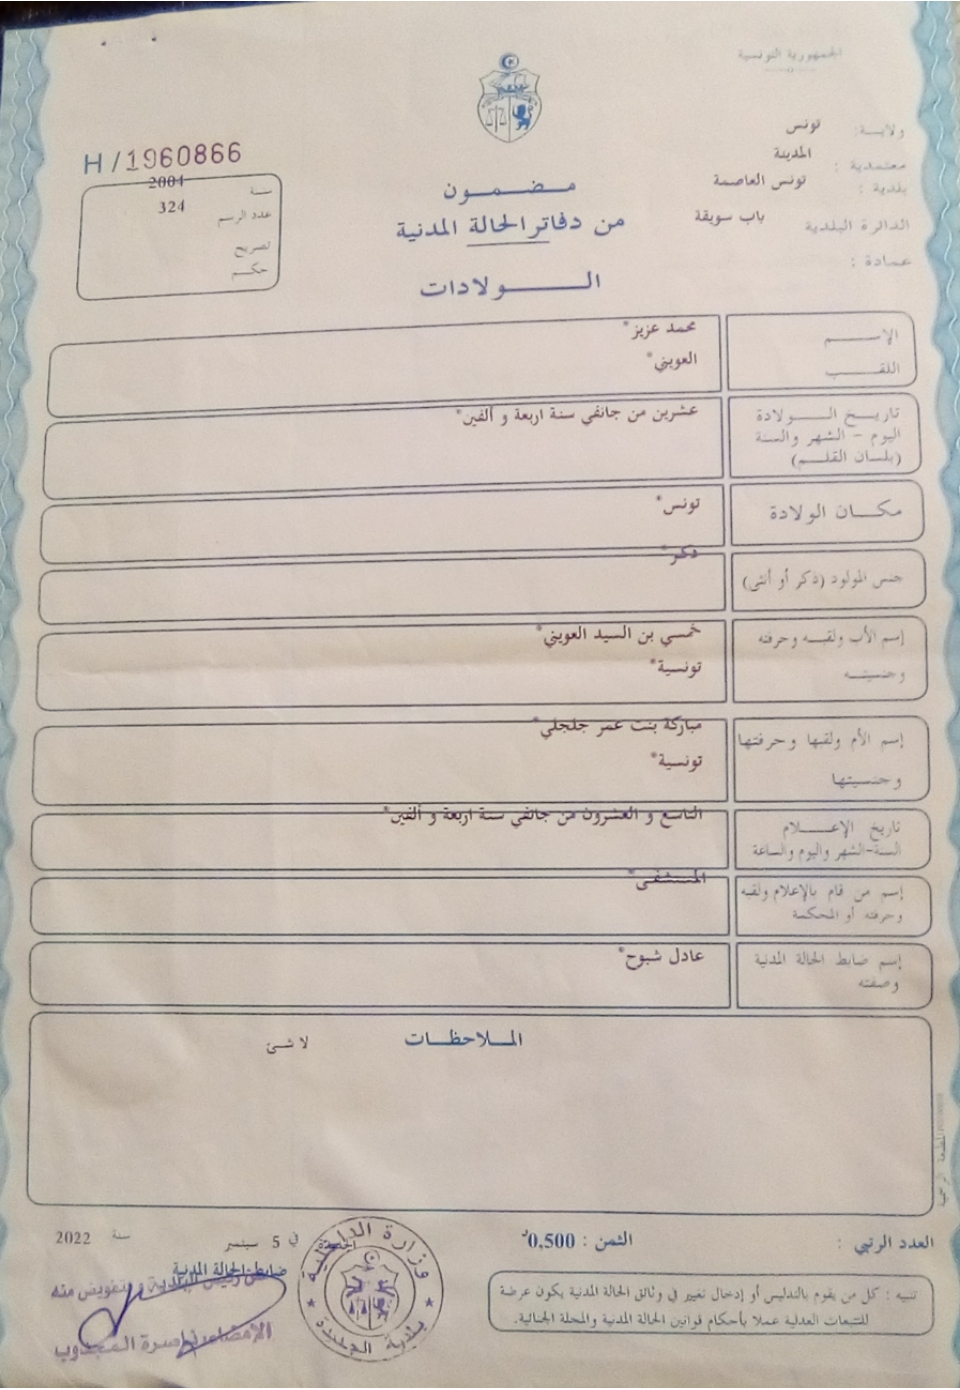 الجمهورية التونسية
ولاية: تونس
معتمدية : المدينة
بلدية : تونس العاصمة
الدائرة البلدية باب سويقة
عمادة :
H/1960866
سنة 2004
عدد الرسم 324
تصريح
حكم
مضمون
من دفاتر الحالة المدنية
الولادات
الإسم محمد عزيز*
اللقب العويني*
تاريخ الولادة عشرين من جانفي سنة اربعة و ألفين*
اليوم - الشهر والسنة
(بلسان القلم)
مكان الولادة تونس*
جنس المولود (ذكر أو أنثى) ذكر*
إسم الأب ولقبه وحرفته خمسي بن السيد العويني*
وجنسيته تونسية*
إسم الأم ولقبها وحرفتها مباركة بنت عمر جلجلي*
وجنسيتها تونسية*
تاريخ الإعلام التاسع و العشرون من جانفي سنة اربعة و ألفين*
السنة-الشهر واليوم والساعة
إسم من قام بالإعلام ولقبه المستشفى*
وحرفته أو المحكمة
إسم ضابط الحالة المدنية عادل شبوح*
وصفته
الملاحظات
لا شئ
العدد الرتبي :
الثمن : 0,500د
في 5 سبتمبر سنة 2022
ضابط الحالة المدنية
عن رئيس البلدية وبتفويض منه
الإمضاء
وزارة الداخلية
بلدية الجديدة
تنبيه : كل من يقوم بالتدليس أو إدخال تغيير في وثائق الحالة المدنية يكون عرضة
للتتبعات العدلية عملا بأحكام قوانين الحالة المدنية والمجلة الجنائية.